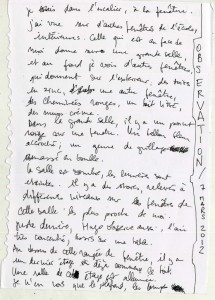 je suis dans l'escalier, à la fenêtre.
j'ai vue sur d'autres fenêtres de l'école,
intérieures. Celle qui est en face de
moi donne sur une grande salle,
et au fond je vois d'autres fenêtres,
qui donnent sur l'extérieur. des toits
en zinc, une autre fenêtre,
des cheminées rouges, un toit
des murs crème.
Dans la grande salle, il y a un
rouge sur une fenêtre. Un ballon
accroché; un genre de
en boule.
la salle est sombre, les lumières sont
éteintes. Il y a des stores, relevés à
différents niveaux sur les fenêtres de
cette salle. le plus proche de moi
Hugo observe aussi, l'air
très concentré,
Au bout de cette rangée de fenêtre, il y a
un dernier étage
Une salle de cet étage est allumée.
je n'en vois que le plafond,
OBSERVATION / 7 MARS 2012